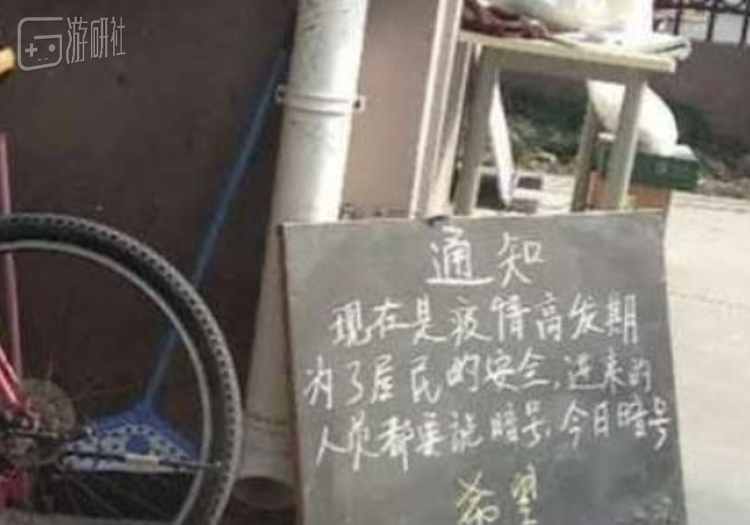 游研社
通知
现在是疫情高发期
为了居民的安全,进来的
人员都要说暗号,今日暗号
希望